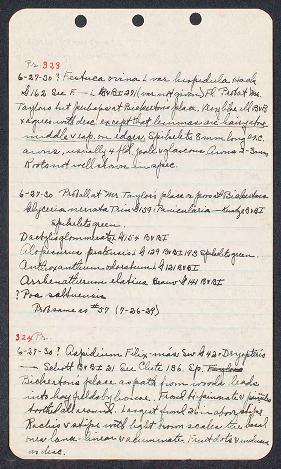 Pr. 323
6-27-30 ? Festuca ovina L var hispidula Hack
G162 See F. — L B&BI 271 (var not given) Fl Prob at Mr.
Taylors but perhaps at Bickertons place. Very like ill B&B
& agrees with desc except that lemmas are hairy to
middle & esp. on edges. Spikelets 8 mm long exc.
awns, usually 4 fld, pale & glaucous Awns 2-3 mm
Roots not well shown in spec.
6-27-30 Prob all at Mr Taylor's place or poss at Bickertons
Glyceria nervata Trin G159 = Panicularia B&BI
Spikelets green.
Dactylis glomerata L G154 B&BI
Alopecurus pratensis L G129 B&BI 193 Spikelets green.
Anthoxanthum odoratum L G121 B&BI
Arrhenatherum elatius Beauv G141 B&BI
? Poa saltuensis
Prob same as #57 (7-26-29)
324 Pr.
6-27-30 ? Aspidium Filix-mas Sw G42 = Dryopteris
— Schott B&BI 21 See Clute 186. Sp.
Bickertons place on path from woods leads
into hay field by house. Frond bi-pinnate & pinnules
toothed all around. Largest frond 20 in above
Rachis & stipe with light brown scales the basal
ones lance-linear & acuminate. Fruit dots & indusia
as in desc.